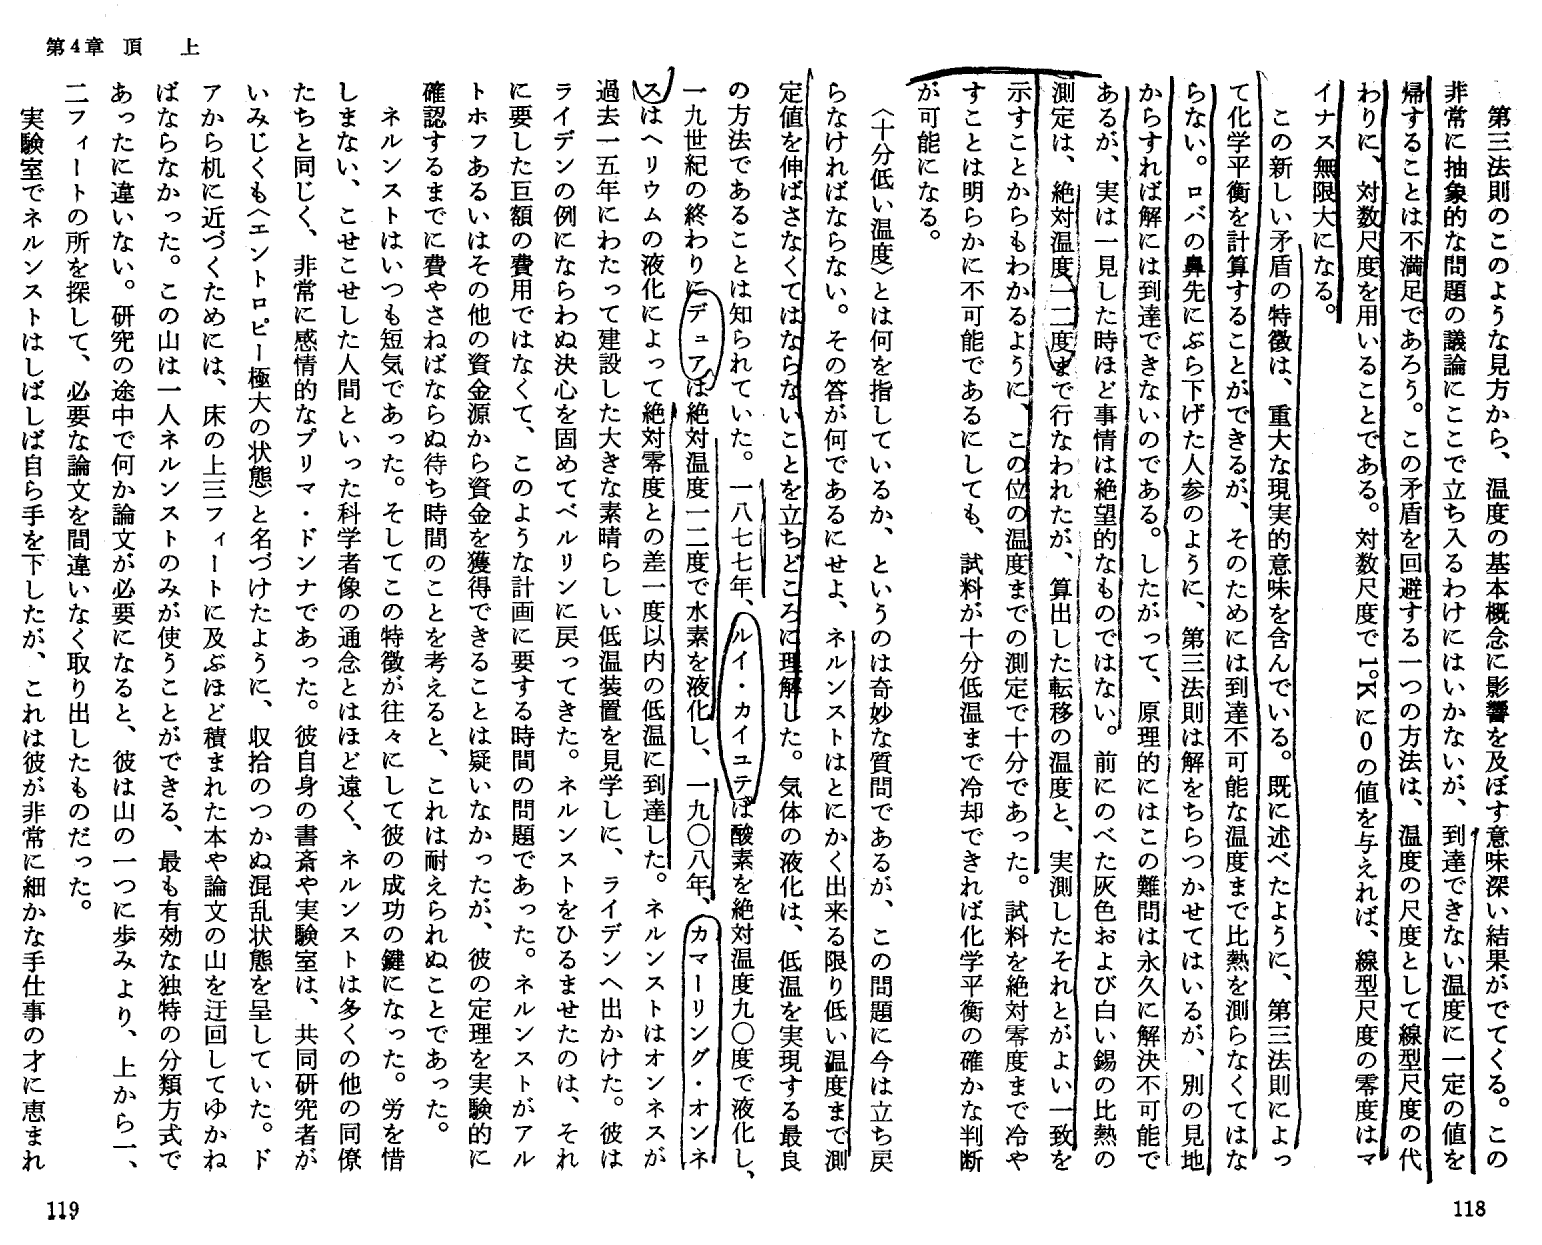 第三法則のこのような見方から、温度の基本概念に影響を及ぼす意味深い結果がでてくる。この
非常に抽象的な問題の議論にここで立ち入るわけにはいかないが、到達できない温度に一定の値を
帰することは不満足であろう。この矛盾を回避する一つの方法は、温度の尺度として線型尺度の代
わりに、対数尺度を用いることである。対数尺度で1°Kに0の値を与えれば、線型尺度の零度はマ
イナス無限大になる。
この新しい矛盾の特徴は、重大な現実的意味を含んでいる。既に述べたように、第三法則によっ
て化学平衡を計算することができるが、そのためには到達不可能な温度まで比熱を測らなくてはな
らない。ロバの鼻先にぶら下げた人参のように、第三法則は解をちらつかせてはいるが、別の見地
からすれば解には到達できないのである。したがって、原理的にはこの難問は永久に解決不可能で
あるが、実は一見した時ほど事情は絶望的なものではない。前にのべた灰色および白い錫の比熱の
測定は、絶対温度一二度まで行なわれたが、算出した転移の温度と、実測したそれとがよい一致を
示すことからもわかるように、この位の温度までの測定で十分であった。試料を絶対零度まで冷や
すことは明らかに不可能であるにしても、試料が十分低温まで冷却できれば化学平衡の確かな判断
が可能になる。
〈十分低い温度〉とは何を指しているか、というのは奇妙な質問であるが、この問題に今は立ち戻
らなければならない。その答が何であるにせよ、ネルンストはとにかく出来る限り低い温度まで測
定値を伸ばさなくてはならないことを立ちどころに理解した。気体の液化は、低温を実現する最良
の方法であることは知られていた。一八七七年、ルイ・カイユテは酸素を絶対温度九〇度で液化し、
一九世紀の終わりにデュアは絶対温度一二度で水素を液化し、一九〇八年、カマーリング・オンネ
スはヘリウムの液化によって絶対零度との差一度以内の低温に到達した。ネルンストはオンネスが
過去一五年にわたって建設した大きな素晴らしい低温装置を見学しに、ライデンへ出かけた。彼は
ライデンの例にならわぬ決心を固めてベルリンに戻ってきた。ネルンストをひるませたのは、それ
に要した巨額の費用ではなくて、このような計画に要する時間の問題であった。ネルンストがアル
トホフあるいはその他の資金源から資金を獲得できることは疑いなかったが、彼の定理を実験的に
確認するまでに費やさねばならぬ待ち時間のことを考えると、これは耐えられぬことであった。
ネルンストはいつも短気であった。そしてこの特徴が往々にして彼の成功の鍵になった。労を惜
しまない、こせこせした人間といった科学者像の通念とはほど遠く、ネルンストは多くの他の同僚
たちと同じく、非常に感情的なプリマ・ドンナであった。彼自身の書斎や実験室は、共同研究者が
いみじくも〈エントロピー極大の状態〉と名づけたように、収拾のつかぬ混乱状態を呈していた。ド
アから机に近づくためには、床の上三フィートに及ぶほど積まれた本や論文の山を迂回してゆかね
ばならなかった。この山は一人ネルンストのみが使うことができる、最も有効な独特の分類方式で
あったに違いない。研究の途中で何か論文が必要になると、彼は山の一つに歩みより、上から一、
二フィートの所を探して、必要な論文を間違いなく取り出したものだった。
実験室でネルンストはしばしば自ら手を下したが、これは彼が非常に細かな手仕事の才に恵まれ
第4章 頂 上
118
119